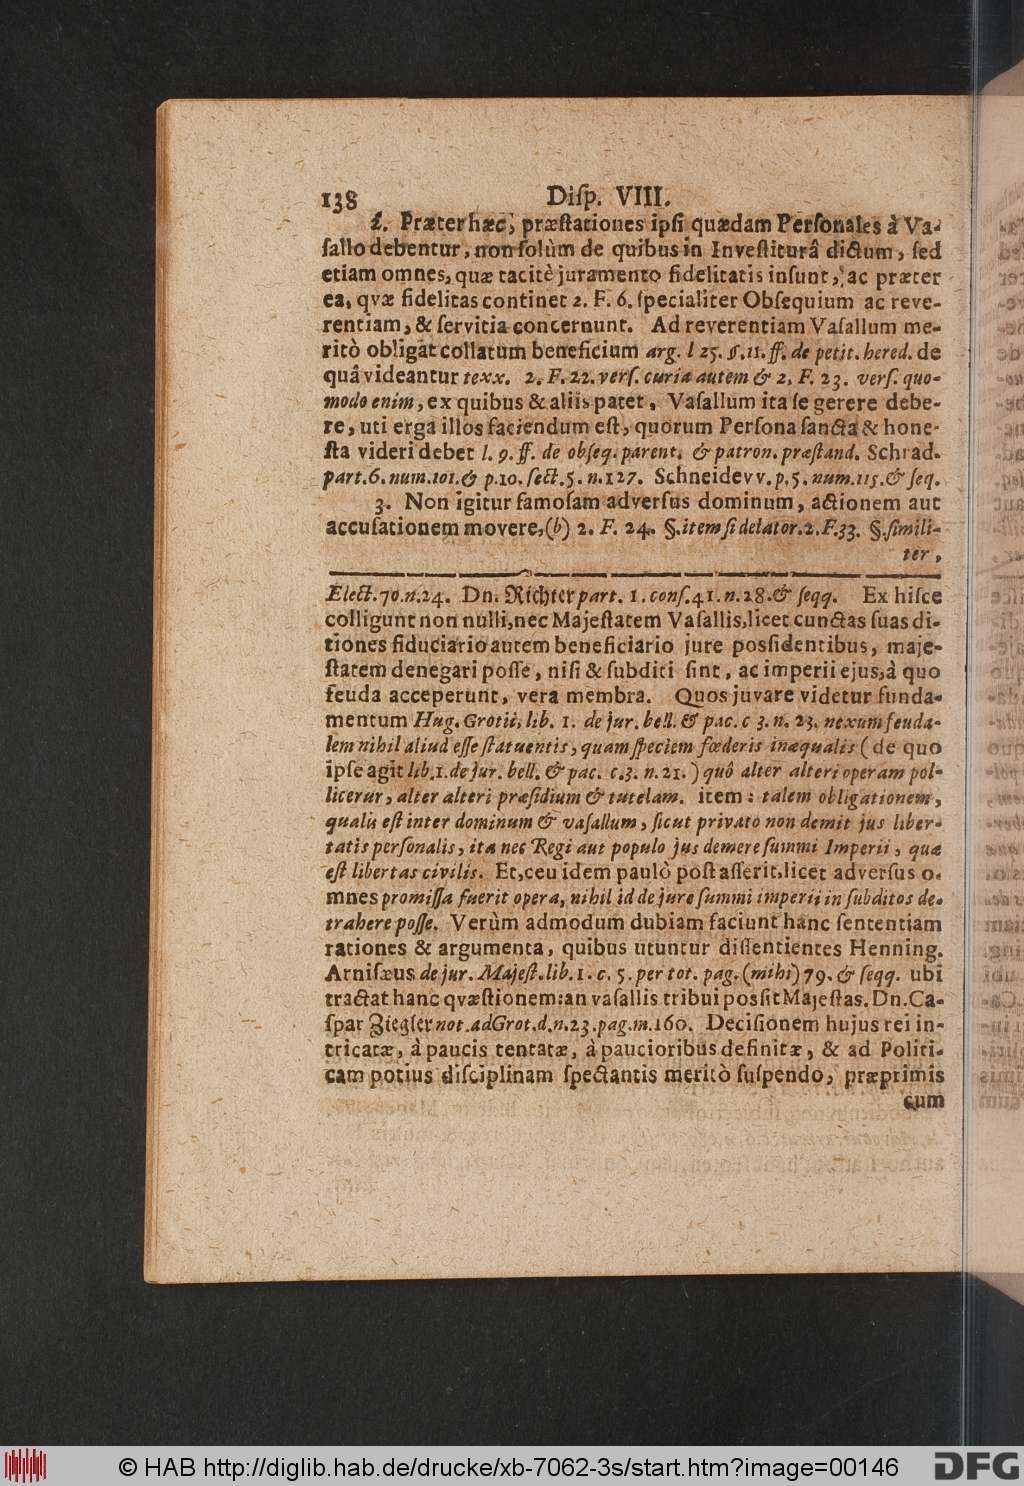 138 Diſp. VIII.
2. Præter hæc, præſtationes ipſi quædam Perſonales à Va-
ſallo debentur, non ſolùm de quibus in Inveſtiturâ dictum, ſed
etiam omnes, quæ tacitè juramento fidelitatis inſunt, ac præter
ea, qvæ fidelitas continet 2. F. 6. ſpecialiter Obſequium ac reve-
rentiam, & ſervitia concernunt. Ad reverentiam Vaſallum me-
ritò obligat collatum beneficium arg. l 25. §. 11. ff. de petit. hered. de
quâ videantur texx. 2. F. 22. verſ. curia autem & 2. F. 23. verſ. quo-
modo enim, ex quibus & aliis patet, Vaſallum ita ſe gerere debe-
re, uti erga illos faciendum eſt, quorum Perſona ſancta & hone-
ſta videri debet l. 9. ff. de obſeq. parent. & patron. præſtand. Schrad.
part. 6. num. 101. & p. 10. ſect. 5. n. 127. Schneidevv. p. 5. num. 115. & ſeq.
3. Non igitur famoſam adverſus dominum, actionem aut
accuſationem movere, (b) 2. F. 24. §. item ſi delator. 2. F. 33. §. ſimili-
ter,
Elect. 70. n. 24. Dn. Richter part. 1. conſ. 41. n. 28. & ſeqq. Ex hiſce
colligunt non nulli, nec Majeſtatem Vaſallis, licet cunctas ſuas di-
tiones fiduciario autem beneficiario jure posſidentibus, maje-
ſtatem denegari poſſe, niſi & ſubditi ſint, ac imperii ejus, à quo
feuda acceperunt, vera membra. Quos juvare videtur funda-
mentum Hug. Grotii, lib. 1. de jur. bell. & pac. c 3. n. 23. nexum feuda-
lem nihil aliud eſſe ſtatuentis, quam ſpeciem fœderis inæqualis (de quo
ipſe agit lib. 1. de jur. bell. & pac. c. 3. n. 21.) quô alter alteri operam pol-
licetur, alter alteri præſidium & tutelam. item: talem obligationem,
qualis eſt inter dominum & vaſallum, ſicut privato non demit jus liber-
tatis perſonalis, ita nec Regi aut populo jus demere ſummi Imperii, quæ
eſt libertas civilis. Et, ceu idem paulò poſt aſſerit, licet adverſus o-
mnes promiſſa fuerit opera, nihil id de jure ſummi imperii in ſubditos de-
trahere poſſe. Verùm admodum dubiam faciunt hanc ſententiam
rationes & argumenta, quibus utuntur diſſentientes Henning.
Arniſæus de jur. Majeſt. lib. 1. c. 5. per tot. pag. (mihi) 79. & ſeqq. ubi
tractat hanc qvæſtionem: an vaſallis tribui posſit Majeſtas. Dn. Ca-
ſpar Ziegler not. ad Grot. d. n. 23. pag. m. 160. Deciſionem hujus rei in-
tricatæ, à paucis tentatæ, à paucioribus definitæ, & ad Politi-
cam potius diſciplinam ſpectantis meritò ſuſpendo, præprimis
cum
© HAB http://diglib.hab.de/drucke/xb-7062-3s/start.htm?image=00146
DFG